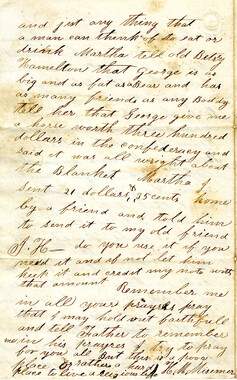 and just any thing that
a man can think of to eat or
drink Martha told old Betsy
Hamelton that George is as
big and as fat as Dear and has
as many friends as any Boddy
told her that George give me
a horse worth three hundred
dollars in the confederacy and
said it was all wright about
the Blanket Martha I
sent 21 dollars & 25 cents home
by a friend and told him
to send it to my old friend
J. H— do you use it if you
need it and if not let him
keep it and credit my note with
that amount Remember me
in all your prayers pray
that I may hold out faithfull
and tell Father to remember
me in his prayres I try to pray
for you all But this is a poor
place or rather a hard
place to live a religious life H. M. Misemer